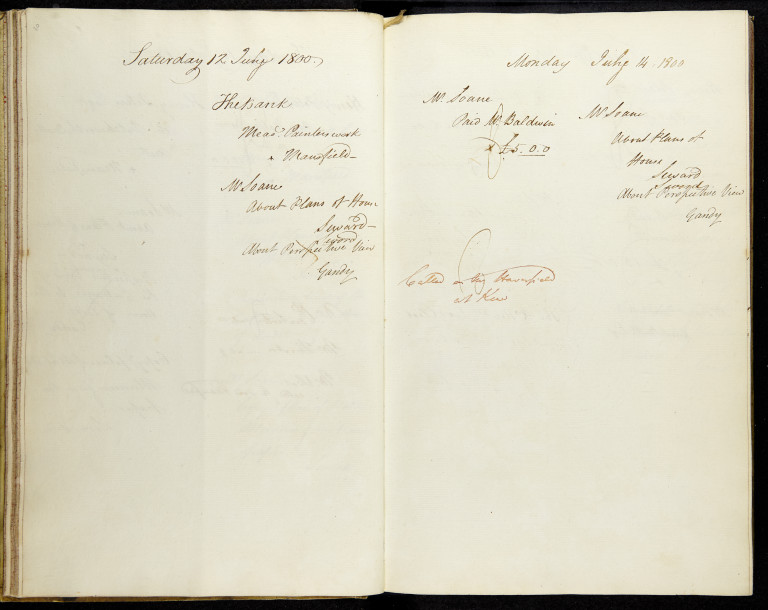 Saturday 12 July 1800.
The Bank
Meas.g Painters work
x Mansfield
Mr Soane
About Plans of House
Seward
Sword
About Perspective View
Gandy
Monday July 14. 1800
Mr Soane
Paid W. Baldwin
x £5.0.0
Called on
at Kew
Mr Soane
About Plans of
House
Seward
Sword
About Perspective View
Gandy